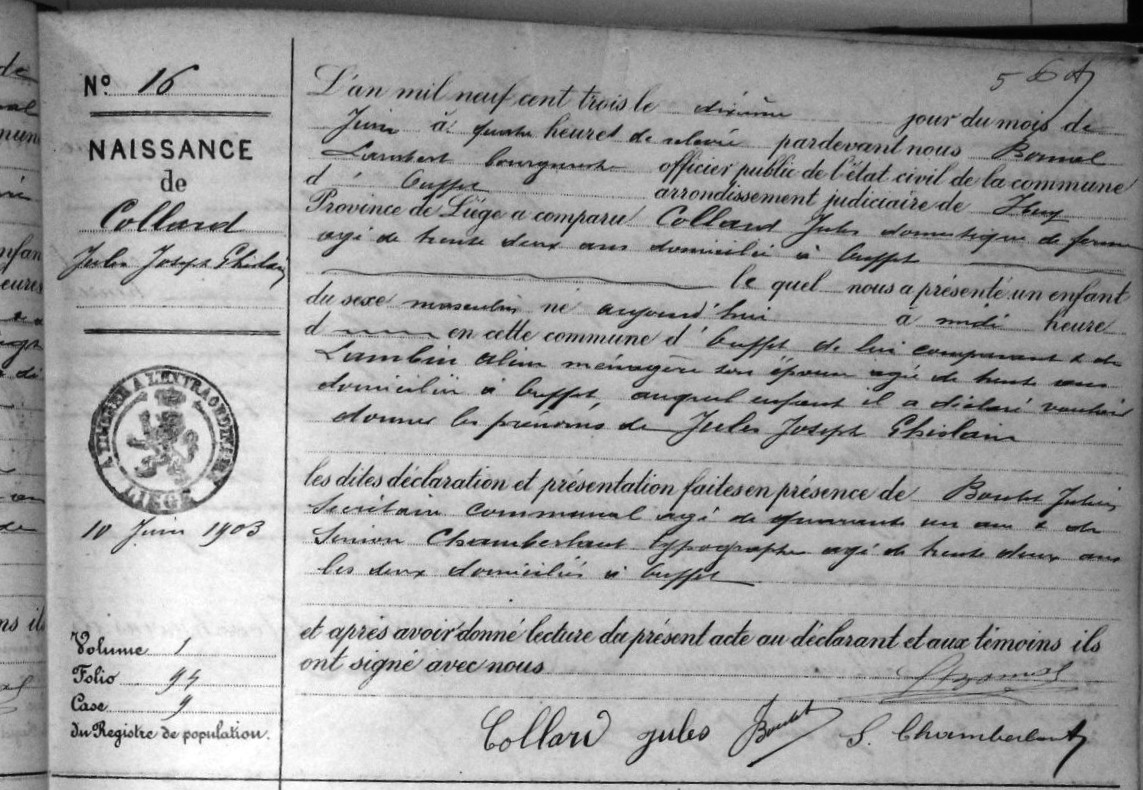 Nº 16
NAISSANCE
de
Collard
Jules Joseph Ghislain
A L'EXTRAORDINAIRE
LIEGE
10 Juin 1903
Volume 1
Folio
Case 9
du Registre de population.
L'an mil neuf cent trois le dixième jour du mois de
Juin à quatre heures de relevée pardevant nous Bonmal
Lambert bourgmestre officier public de l'état civil de la commune
d' Ouffet arrondissement judiciaire de Huy
Province de Liége a comparu Collard Jules domestique de ferme
agé de trente deux ans domicilié à Ouffet
le quel nous a présenté un enfant
du sexe masculin né aujourd'hui à midi heure
d en cette commune d' Ouffet de lui comparant & de
ménagère son épouse agée de trente ans
domiciliée à Ouffet auquel enfant il a déclaré vouloir
donner les prénoms de Jules Joseph Ghislain
les dites déclaration et présentation faites en présence de Boulet Julien
Secrétaire communal agé de quarante un ans & de
Simon Chamberlant typographe agé de trente deux ans
les deux domiciliés à Ouffet
et après avoir donné lecture du présent acte au déclarant et aux témoins ils
ont signé avec nous
Collard Jules Boulet S. Chamberlant